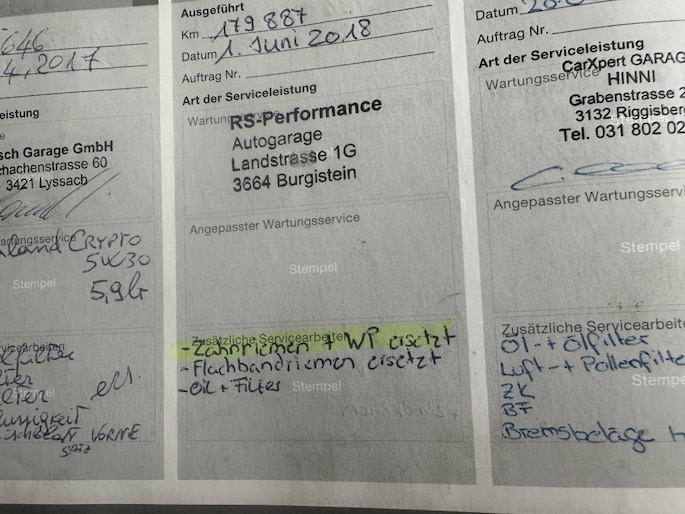 646
4,2017
eistung
sch Garage GmbH
chachenstrasse 60
3421 Lyssach
artungsservice
CRYPTO
5W30
Stempel
5,9 lr
rvicearbeiten
VORNE
SATZ
Ausgeführt
Km 179 887
Datum 1. Juni 2018
Auftrag Nr.
Art der Serviceleistung
Wartungsservice
RS-Performance
Autogarage
Landstrasse 1G
3664 Burgistein
Angepasster Wartungsservice
Stempel
Zusätzliche Servicearbeiten
- Zahnriemen + WP ersetzt
- Flachbandriemen ersetzt
- Oil + Filter
Stempel
Datum
Auftrag Nr.
Art der Serviceleistung
Wartungsservice
CarXpert GARAG
HINNI
Grabenstrasse 2
3132 Riggisberg
Tel. 031 802 02
Angepasster Wartungsservi
Stempel
Zusätzliche Servicearbeite
Öl- + Ölfilter
Luft- + Pollenfilte
ZK
BF
Stempel
Bremsbeläge h